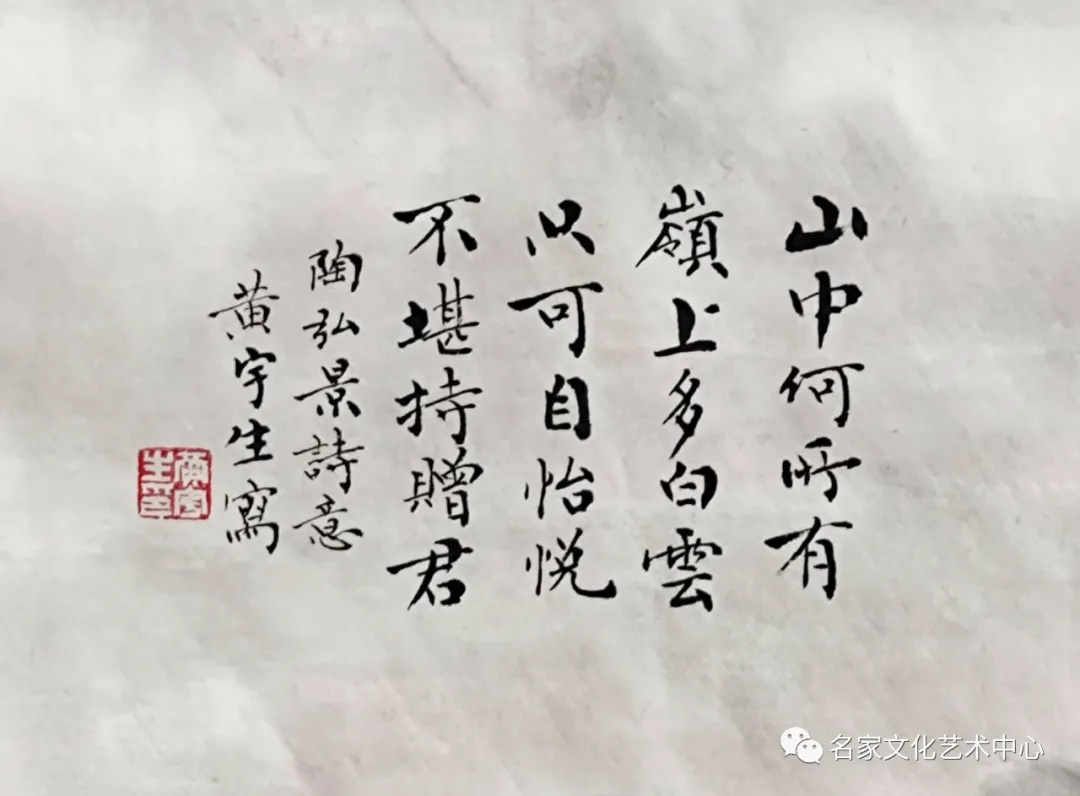 山中何所有
嶺上多白雲
只可自怡悅
不堪持贈君
陶弘景詩意
黄宇生寫
黄宇生印
名家文化艺术中心